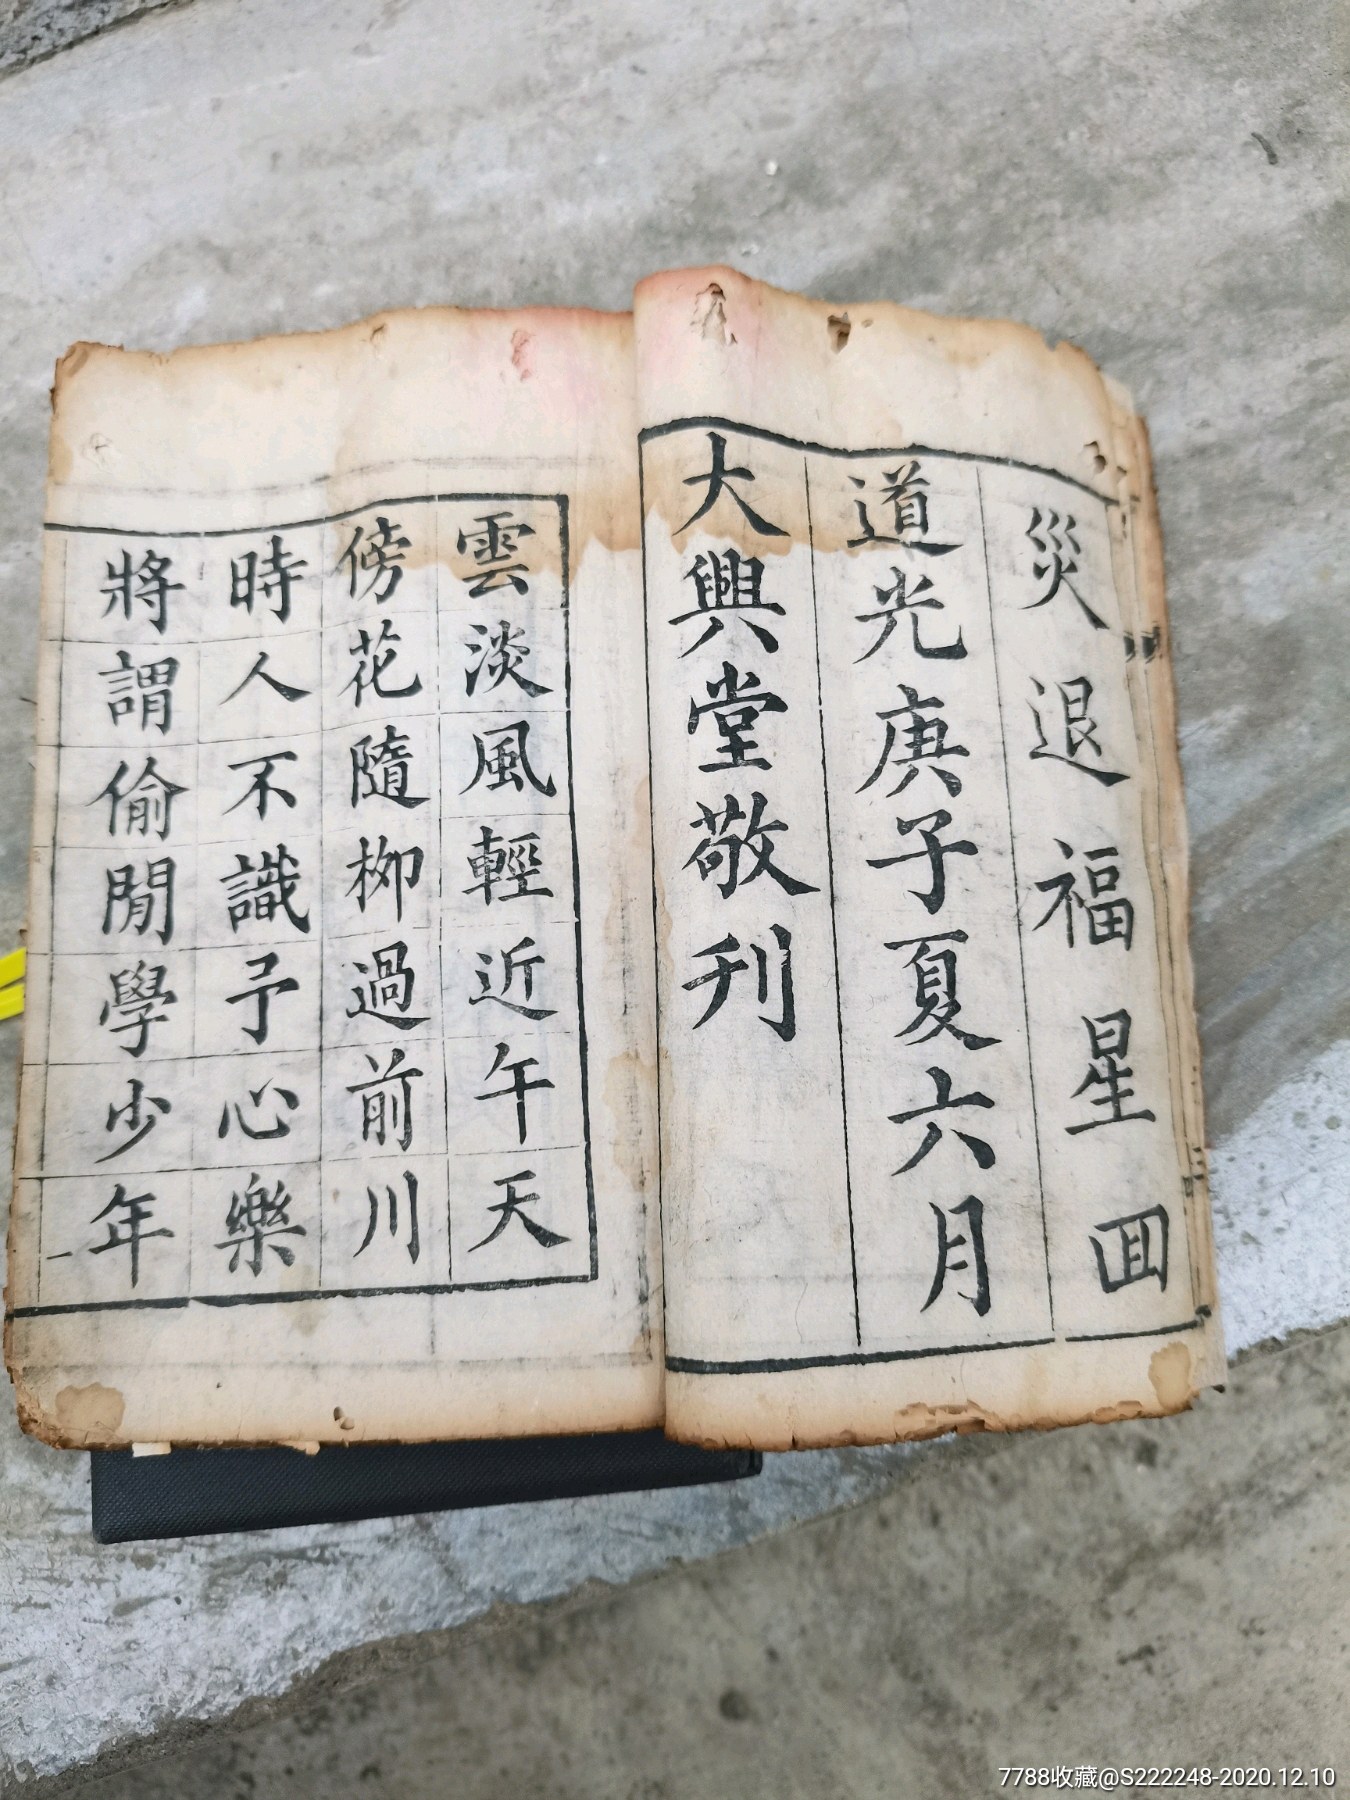 災退福星囬
道光庚子夏六月
大興堂敬刊
雲淡風輕近午天
傍花隨柳過前川
時人不識予心樂
將謂偷閒學少年
7788收藏@S222248-2020.12.10